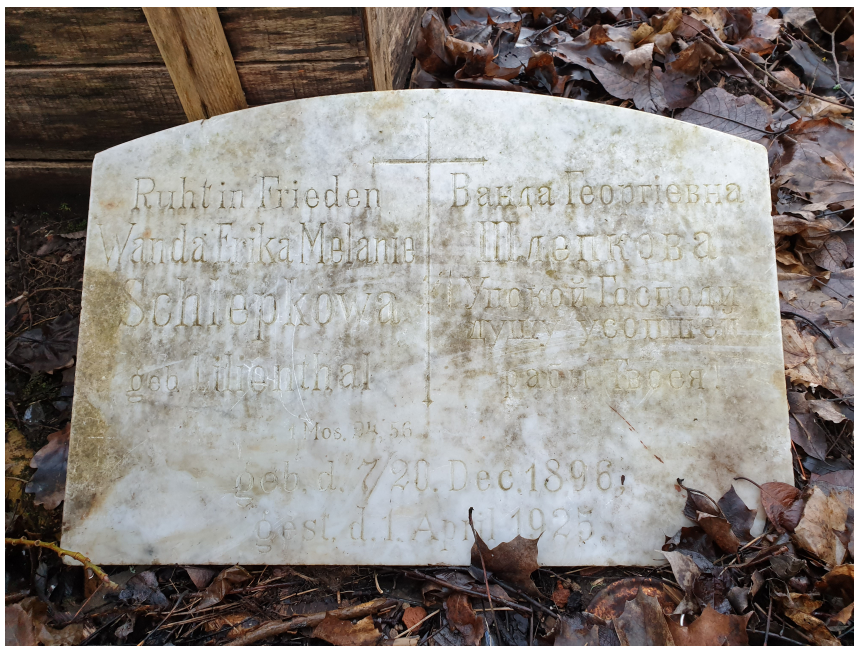 Ruht in Frieden
Wanda Erika Melanie
Schlepkowa
geb. Lilienthal
Ванда Георгіевна
Шлепкова
Упокой Господи
душу усопшей
рабы Твоея
Mos.
geb. d. 7/20. Dec. 1896,
gest. d. 1. April 1925.